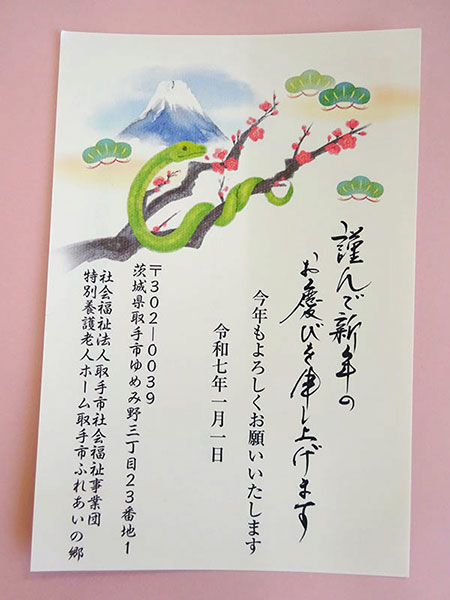 謹んで新年の
お慶びを申し上げます
今年もよろしくお願いいたします
令和七年一月一日
〒302―0039
茨城県取手市ゆめみ野三丁目23番地1
社会福祉法人取手市社会福祉事業団
特別養護老人ホーム取手市ふれあいの郷